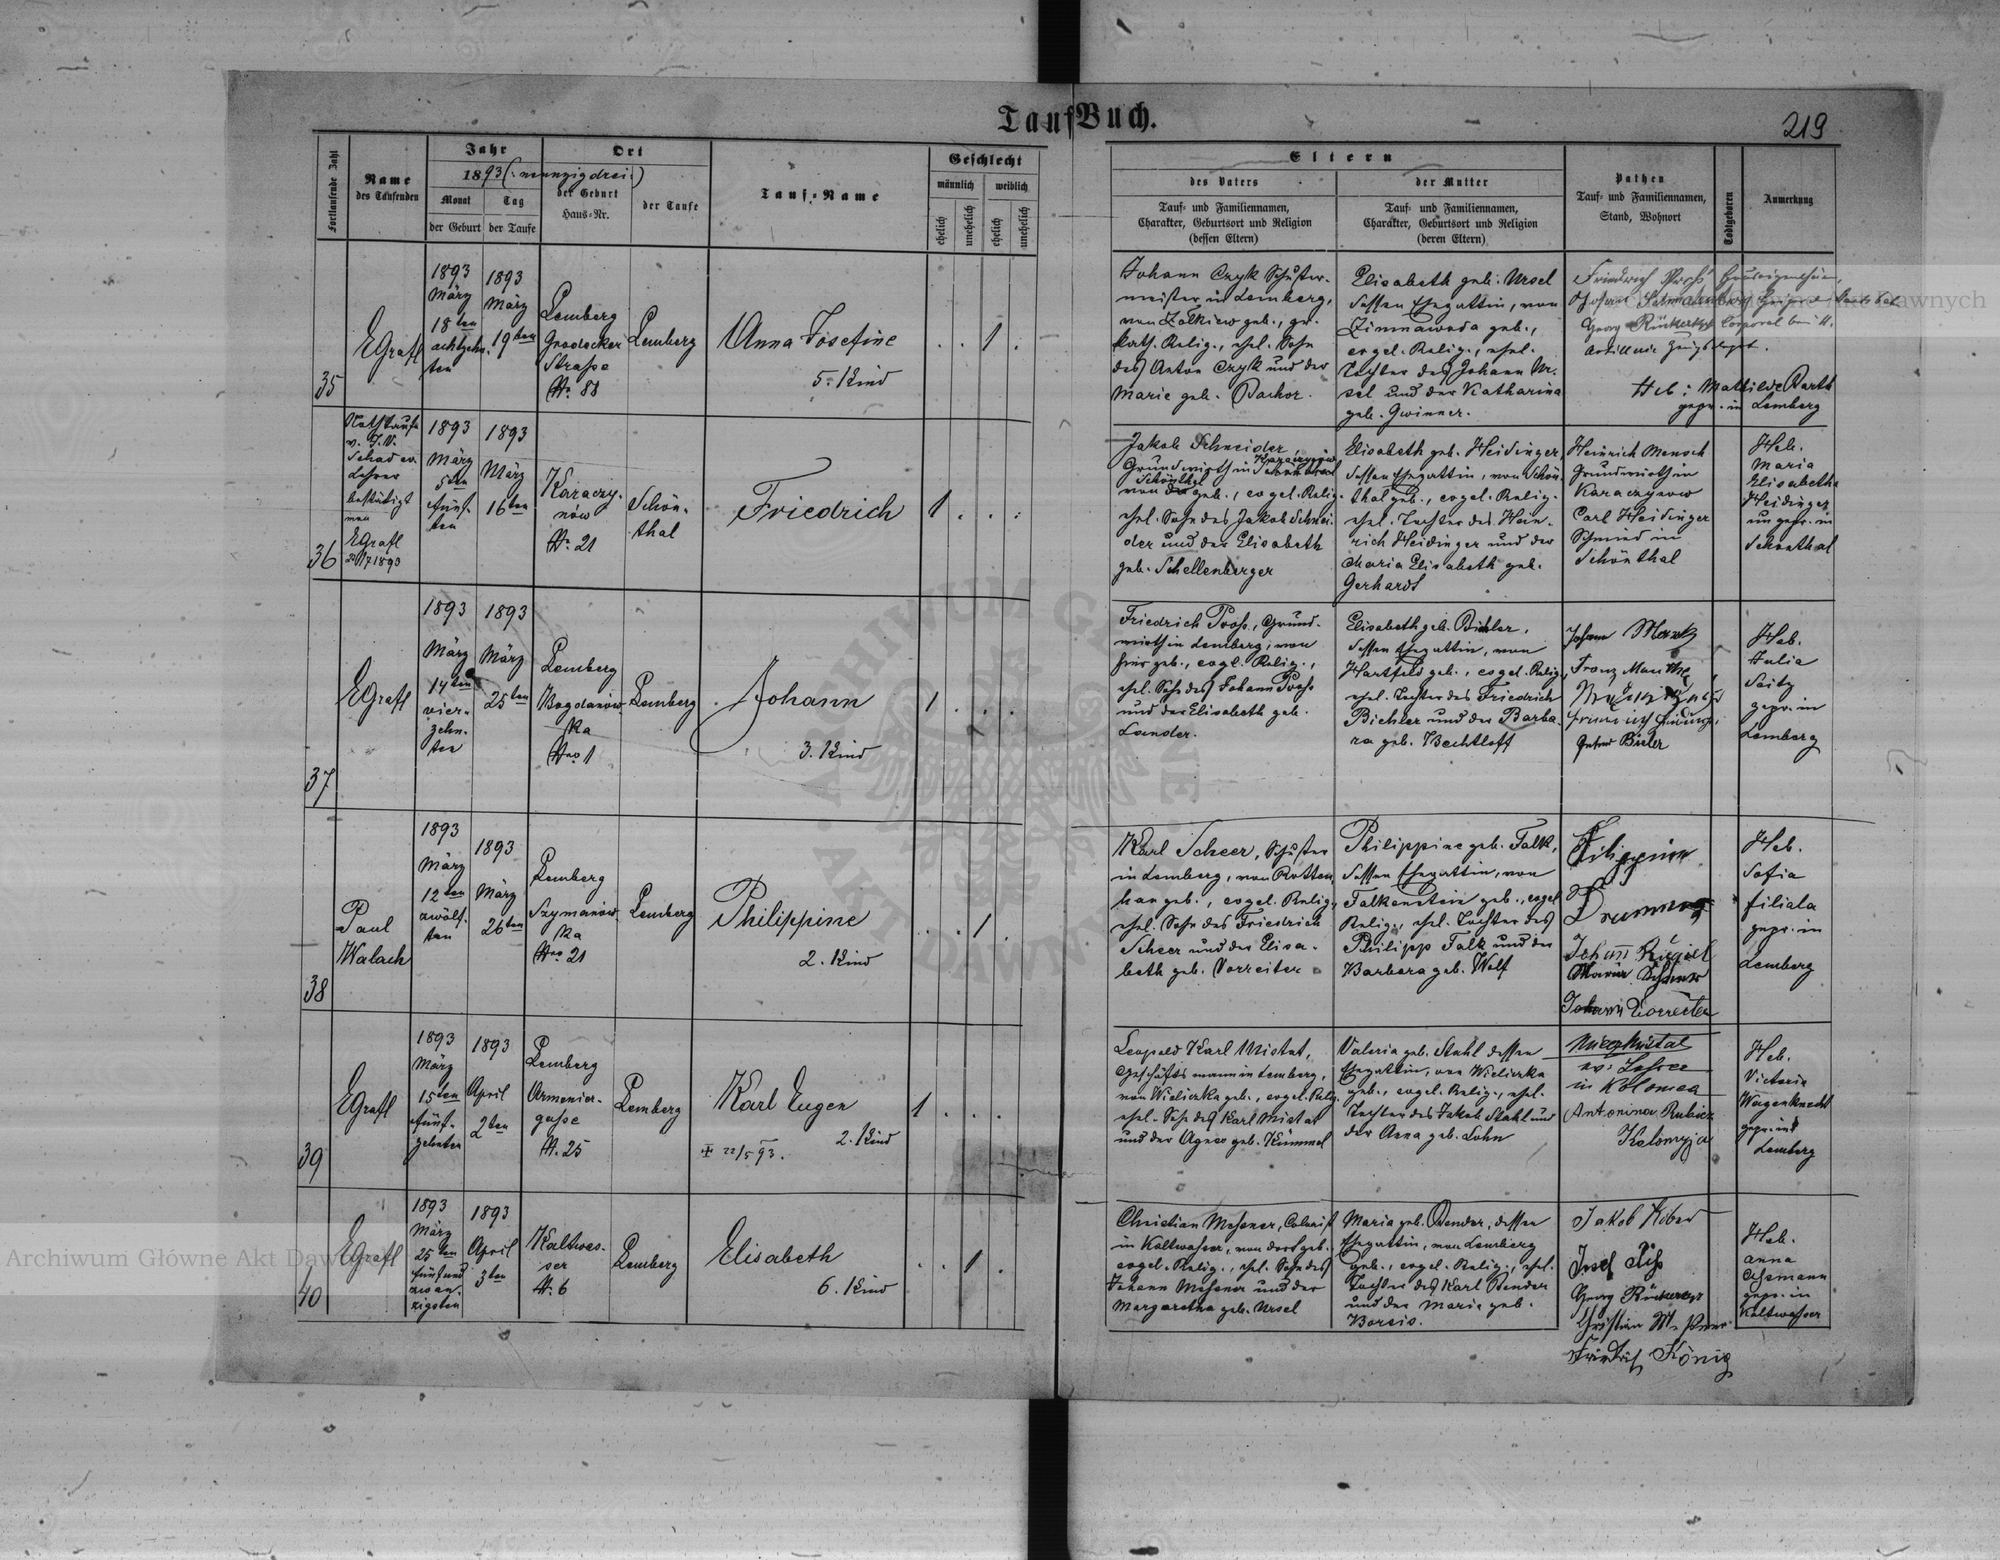 TaufBuch.
219
Fortlaufende Zahl
Name
des Taufenden
Jahr
1893 (: neunzigdrei :)
Monat
Tag
der Geburt
der Taufe
Ort
der Geburt
Haus=Nr.
der Taufe
Tauf=Name
Geschlecht
männlich
weiblich
ehelich
unehelich
ehelich
unehelich
Eltern
des Vaters
Tauf= und Familiennamen,
Charakter, Geburtsort und Religion
(dessen Eltern)
der Mutter
Tauf= und Familiennamen,
Charakter, Geburtsort und Religion
(deren Eltern)
Pathen
Tauf= und Familiennamen,
Stand, Wohnort
Todtgeboren
Anmerkung
35
EGrafl
1893
März
18ten
achtzehn-
ten
1893
März
19ten
Lemberg
Grodecker
Straße
Nr. 88
Lemberg
Anna Josefine
5. Kind
1
Johann Czyk Schuster-
meister in Lemberg,
von Zolkiew geb., gr.
kath. Relig., ehel. Sohn
des Anton Czyk und der
Marie geb. Bachor.
Elisabeth geb. Ursel
dessen Ehegattin, von
Zimnawoda geb.,
evgel. Relig., ehel.
Tochter des Johann Ur-
sel und der Katharina
geb. Gwinner.
Friedrich
Georg
Corporal
Heb: Mathilde Barth
gepr. in Lemberg
36
Nothtaufe
v.
Schad ev.
Lehrer
bestätigt
von
EGrafl
1893
1893
März
5ten
fünf-
ten
1893
März
16ten
Karaczy-
nów
Nr. 21
Schön-
thal
Friedrich
1
Jakob Schneider
Grundwirth in Karaczynów
von Schönthal geb., evgel. Relig.
ehel. Sohn des Jakob Schnei-
der und der Elisabeth
geb. Schellenberger
Elisabeth geb. Heidinger,
dessen Ehegattin, von Schön-
thal geb., evgel. Relig.
ehel. Tochter des Hein-
rich Heidinger und der
Maria Elisabeth geb.
Gerhardt
Heinrich Mensch
Grundwirth in
Karaczynow
Carl Heidinger
Schmied in
Schönthal
Heb.
Maria
Elisabetha
Heidinger
ungepr. in
Schönthal
37
EGrafl
1893
März
14ten
vier-
zehn-
ten
1893
März
25ten
Lemberg
Bogdanów-
ka
Nro 1
Lemberg
Johann
3. Kind
1
Friedrich Pross, Grund-
wirth in Lemberg, von
hier geb., evgl. Relig.,
ehel. Sohn des Johann Pross
und der Elisabeth geb.
Lander.
Elisabeth geb. Bichler,
dessen Ehegattin, von
Hartfeld geb., evgel. Relig.,
ehel. Tochter des Friedrich
Bichler und der Barba-
ra geb. Bechtloff
Johann Manz
Franz
Heb.
Julia
Seitz
gepr. in
Lemberg
38
Paul
Walach
1893
März
12ten
zwölf-
ten
1893
März
26ten
Lemberg
Szymanów-
ka
Nro 21
Lemberg
Philippine
2. Kind
1
Karl Scheer, Schuster
in Lemberg, von Rotten-
han geb., evgel. Relig.,
ehel. Sohn des Friedrich
Scheer und der Elisa-
beth geb. Vorreiter
Philippine geb. Falk,
dessen Ehegattin, von
Falkenstein geb., evgel
Relig., ehel. Tochter des
Philipp Falk und der
Barbara geb. Wolf
Filippine
Johann
Johann Vorreiter
Heb.
Sofia
Filiala
gepr. in
Lemberg
39
EGrafl
1893
März
15ten
fünf-
zehnten
1893
April
2ten
Lemberg
Armenier-
gasse
Nr. 25
Lemberg
Karl Eugen
2. Kind
✠ 22/5 93.
1
Leopold Karl Mistat,
Geschäftsmann in Lemberg,
von Wieliczka geb., evgel. Relig.
ehel. Sohn des Karl Mistat
und der Agnes geb. Kümmel
Valeria geb. Stahl dessen
Ehegattin, von Wieliczka
geb., evgel. Relig., ehel.
Tochter des Jakob Stahl und
der Anna geb. Lohn
ev: Lehrer
in Kolomea
Antonina
Kolomyja
Heb.
Victoria
Wagenknecht
gepr. in
Lemberg
40
EGrafl
1893
März
25ten
fünfund
zwan-
zigsten
1893
April
3ten
Kaltwas-
ser
Nr. 6
Lemberg
Elisabeth
6. Kind
1
Christian Messner, Colonist
in Kaltwasser, von dort geb.
evgel. Relig., ehel. Sohn des
Johann Messner und der
Margaretha geb. Ursel
Maria geb. Bender, dessen
Ehegattin, von Lemberg
geb., evgel. Relig., ehel.
Tochter des Karl Bender
und der Marie geb.
Boreis.
Jakob Kober
Josef
Georg
Christian
Friedrich König
Heb.
Anna
Assmann
gepr. in
Kaltwasser
Archiwum Główne Akt Dawnych
Archiwum Główne Akt Dawnych
ARCHIWUM GŁÓWNE AKT DAWNYCH